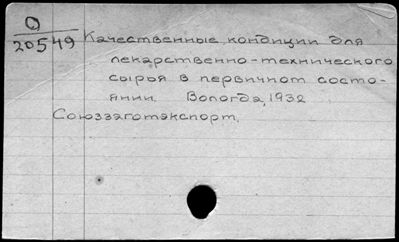 О
20549
Качественные кондиции для
лекарственно-технического
сырья в первичном состо-
янии. Вологда, 1932
Союззаготэкспорт.